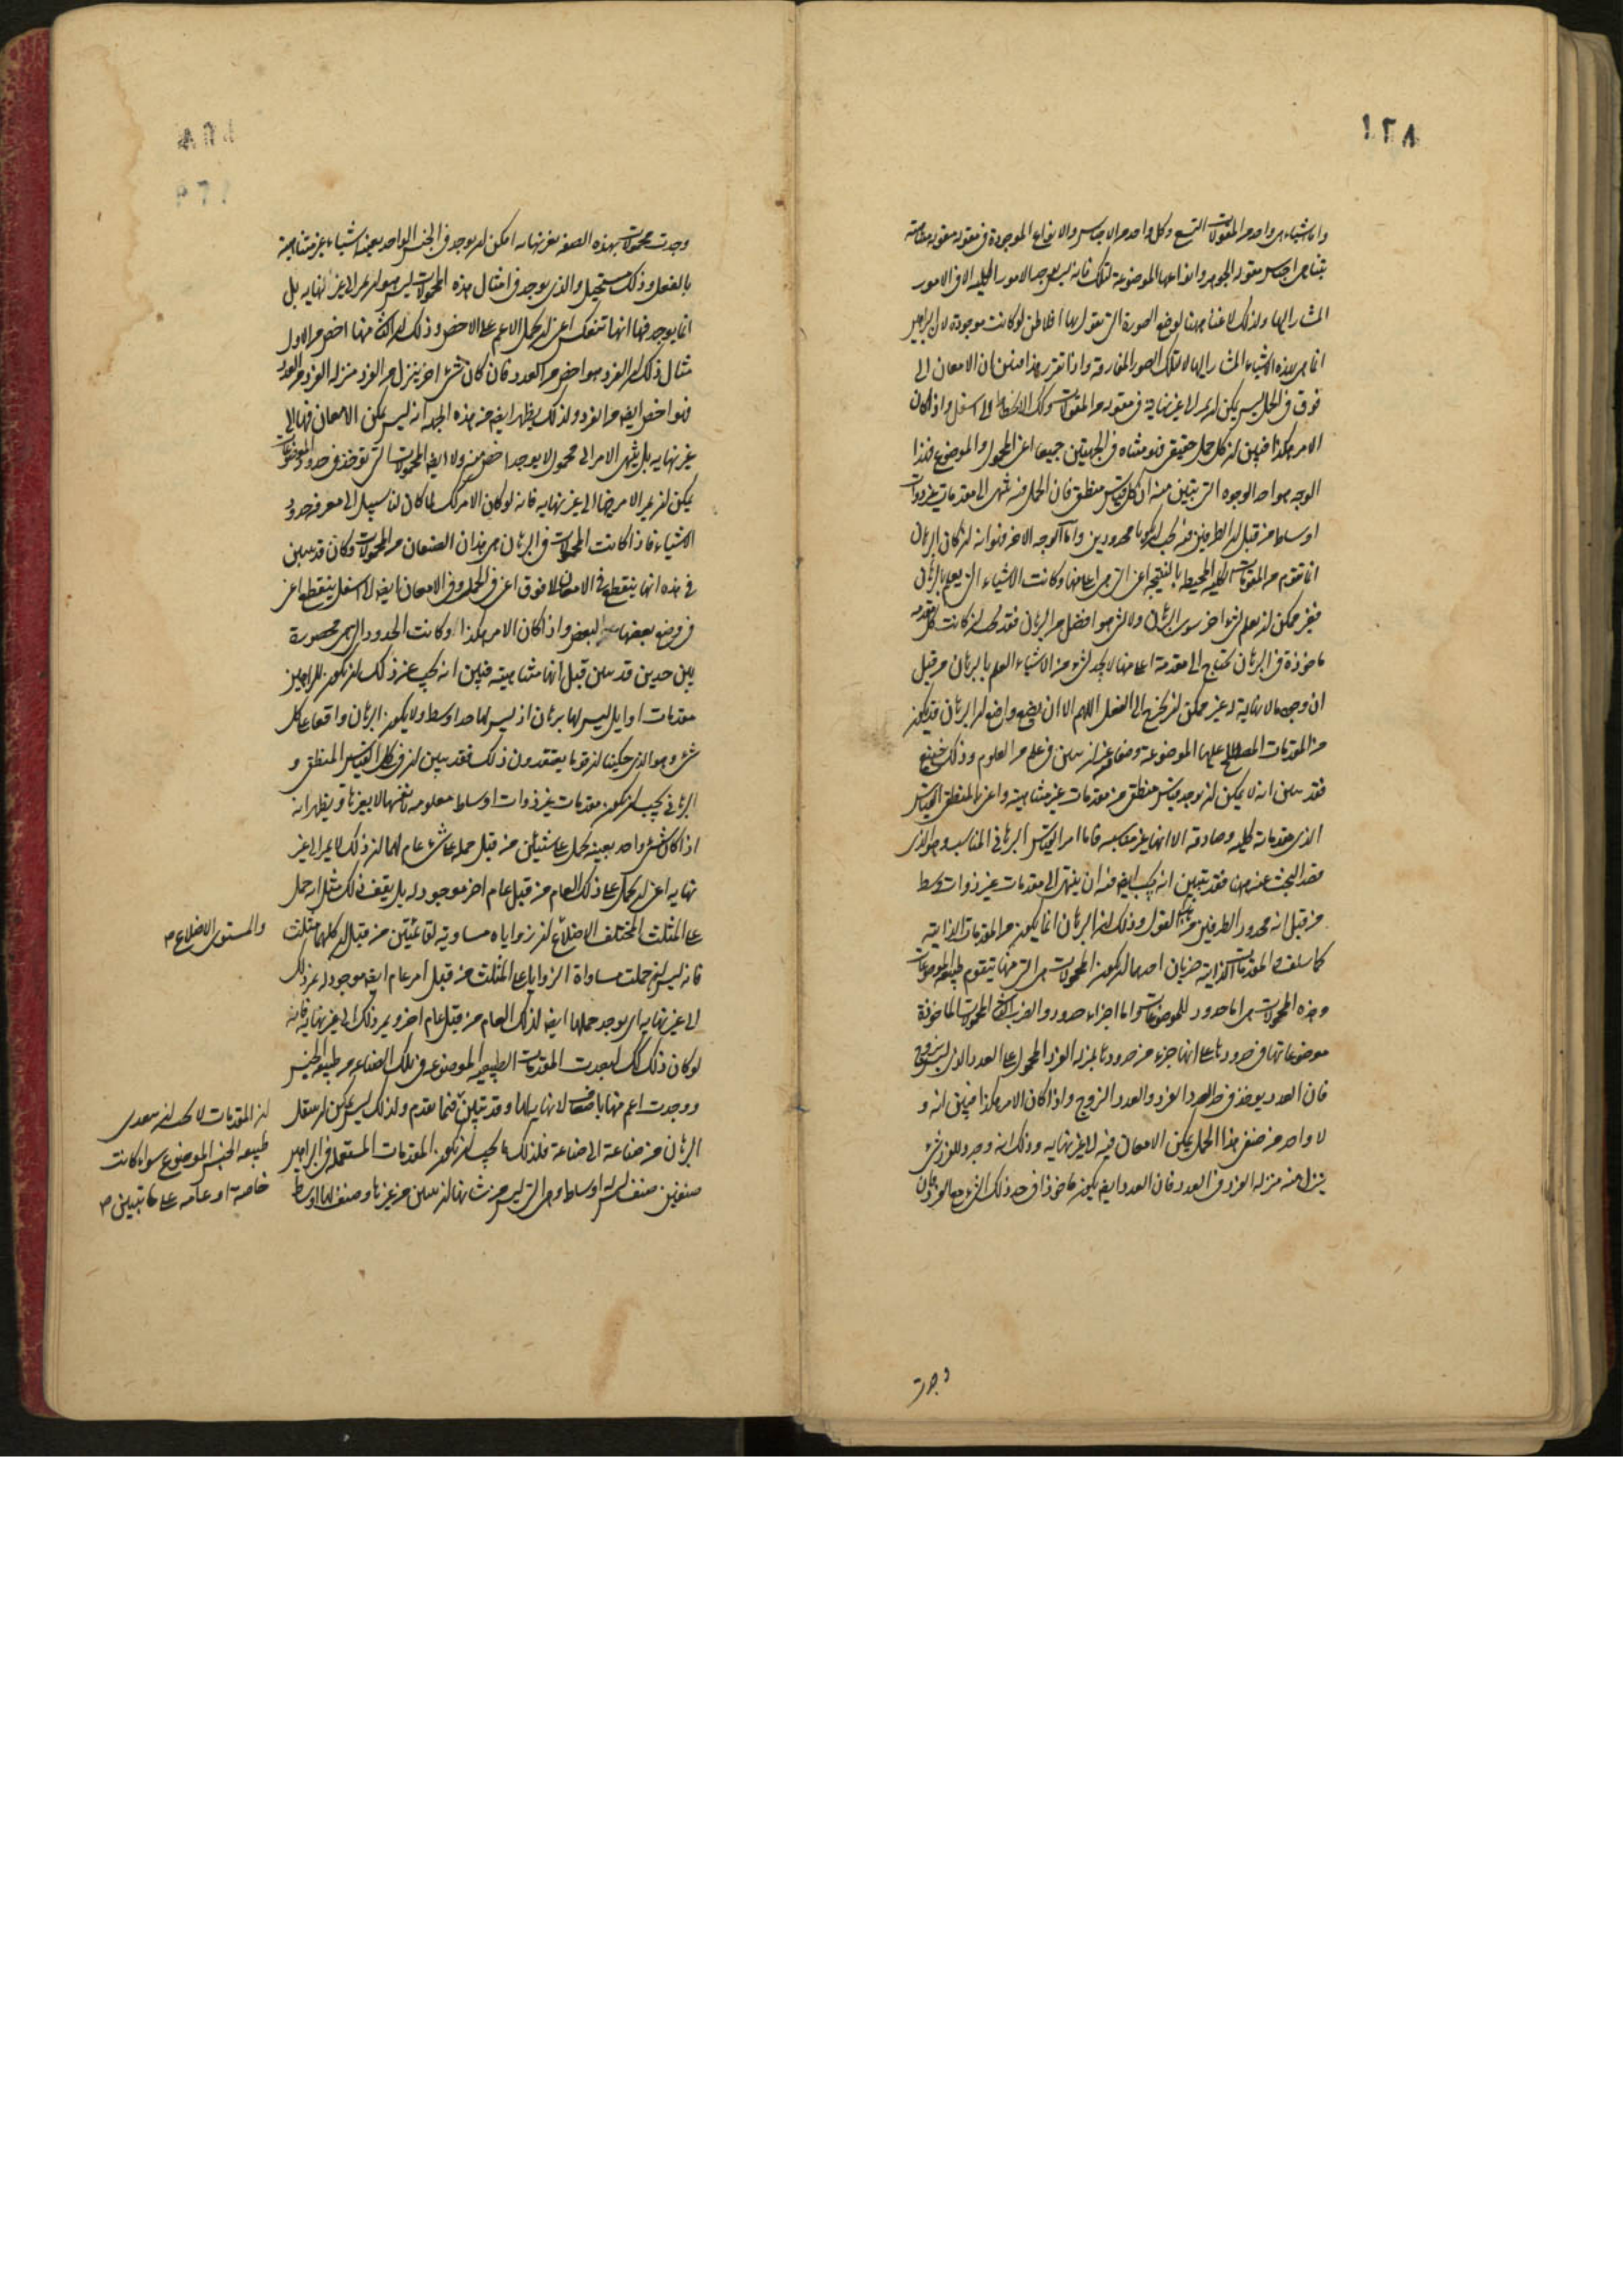 ١٢٨
واما شياء هى واحد من المقولات التسع وكل واحد من الاجناس والانواع الموجودة فى مقوله مقوله
بتناهى اجناس مقوله الجوهر وانواعها الموضوعة لتلك فانه ليس يوجد الامور الكليه الا فى الامور
المشار اليها ولذلك لا غناء ههنا لوضع الصورة التى يقول بها افلاطن لو كانت موجودة لان البراهين
انما هى لهذه الاشياء المشار اليها لا لتلك الصور المفارقة واذا تقرر هذا فبين ان الامعان الى
فوق فى الحمل ليس يمكن ان يمر الى غير نهاية فى مقوله من المقولات وكك الانحطاط الى اسفل واذا كان
الامر هكذا فبين ان كل حمل حقيقى فهو متناه فى الجهتين جميعا اعنى المحمول والموضوع فهذا
الوجه هو احد الوجوه التى يتبين منه ان كل قياس منطقى فان الحمل فيه ينتهى الى مقدمات غير ذوات
اوساط من قبل ان الطرفين فيه يجب ان يكونا محدودين واما الوجه الاخر فهو انه ان كان البرهان
انما تقدم من المقدمات الكليه المحيطة بالنتيجه اعنى التى هى اعلى منها وكانت الاشياء التى يعلم بالبرهان
فغير ممكن ان يعلم بشىء اخر سوى البرهان ولا بشىء هو افضل من البرهان فقد يجب ان كانت كل مقدمه
ماخوذة فى البرهان تحتاج الى مقدمة اعلى منها الا يحد لشىء من الاشياء العلم بالبرهان من قبل
ان وجود ما لا نهاية له غير ممكن ان يخرج الى الفعل اللهم الا ان يضع واضع ان البرهان قد يكون
من المقدمات المصطلح عليها الموضوعة وضعا من غير ان تبين فى علم من العلوم وذلك شنيع
فقد تبين انه لا يمكن ان يوجد قياس منطقى من مقدمات غير متناهية واعنى بالمنطقى القياس
الذى مقدماته كليه وصادقه الا انها غير مناسبه فاما امر القياس البرهانى المناسب وهو الذى
قصد البحث عنه ههنا فقد يتبين انه يجب ايضه فيه ان ينتهى الى مقدمات غير ذوات وسط
من قبل انه محدود الطرفين من هذا القول وذلك ان البرهان انما يكون من المقدمات الذاتية
كما سلف والمقدمات الذاتية ضربان احدهما ان يكون المحمولات هى التى منها يتقوم طبيعه الموضوعات
وهذه المحمولات هى اما حدود للموضوعات واما اجزاء حدود والضرب الثانى المحمولات الماخوذة
موضوعاتها فى حدودها على انها جزء من حدودها بمنزله الفرد المحمول على العدد الذى ليس بزوج
فان العدد يوخذ فى حد العدد الفرد والعدد الزوج واذا كان الامر هكذا فبين انه و
لا واحد من صنفى هذا الحمل يمكن الامعان فيه الى غير نهايه وذلك انه ان وجد للفرد شىء
ينزل منه منزله الفرد من العدد فان العدد ايضه يكون ماخوذا فى حد ذلك الشىء مع الفرد وان
وجدت
وجدت محمولات بهذه الصفه بغير نهايه امكن ان يوجد فى الجنس الواحد بعينه اشياء غير متناهية
بالفعل وذلك مستحيل والذى يوجد فى امثال هذه المحمولات ليس هو ان يمر الى غير نهايه بل
انما يوجد فيها انها تنعكس اعنى ان يحمل الاعم على الاخص وذلك ان الثانى منها اخص من الاول
مثال ذلك ان الفرد هو اخص من العدد فان كان شىء اخر ينزل من الفرد منزله الفرد من العدد
فهو اخص ايضه من الفرد ولذلك يظهر ايضه من هذه الجهه انه ليس يمكن الامعان فيها الى
غير نهايه بل ينتهى الامر الى محمول لا يوجد اخص منه ولا ايضه المحمولات التى توخذ فى حدود الموضوعات
يمكن ان يمر الامر فيها الى غير نهايه فانه لو كان الامر كك لما كان لنا سبيل الى معرفة حدود
الاشياء فاذا كانت المحمولات فى البرهان هى هذان الصنفان من المحمولات وكان قد تبين
فى هذه انها ينقطع فى الامعان الى فوق اعنى فى الحمل وفى الامعان ايضه الى اسفل ينقطع اعنى
فى وضع بعضها لبعض واذا كان الامر هكذا وكانت الحدود التى هى محصورة
بين حدين قد تبين قبل انها متناهيته فبين انه يجب عن ذلك ان يكون للبراهين
مقدمات اوايل ليس لها برهان اذ ليس لها حد اوسط ولا يكون البرهان واقعا على كل
شىء وهو الذى حكينا ان قوما يعتقدون ذلك فقد تبين ان فى كل القياس المنطقى و
البرهانى يجب ان يكون مقدمات غير ذوات اوساط معلومه بانفسها لا بغيرها وتظهر انه
اذا كان شىء واحد بعينه يحمل على شيئين من قبل حمله على شىء عام لهما ان ذلك لا يمر الى غير
نهايه اعنى ان يحمل على ذلك العام من قبل عام اخر موجود له بل يقف ذلك مثل انه حمل
على المثلث المختلف الاضلاع ان زواياه مساوية لقائمتين من قبل ان كليهما مثلث
فانه ليس ان حملت مساواة الزوايا على المثلث من قبل امر عام ايضه موجود له يمر ذلك
الى غير نهايه اى يوجد حملها ايضه لذلك العام من قبل عام اخر ويمر ذلك الى غير نهايه فانه
لو كان ذلك كك لبعدت المقدمات الطبيعيه الموضوعه فى تلك الصناعه من طبيعه الجنس
ووجدت اعم منها باضعاف لا نهايه لها وقد تبين فيما تقدم ولذلك ليس يمكن ان ينتقل
البرهان من صناعة الى صناعة فلذلك ما يجب ان يكون المقدمات المستعمله فى البراهين
صنفين صنف ليس له اوساط وهى التى ليس من شانها ان تبين من غيرها وصنف لها اوساط
والمستوى الاضلاع ص
ان المقدمات لا يجب ان تتعدى
طبيعه الجنس الموضوع سواء كانت
خاصة او عامه على ما تبين ص